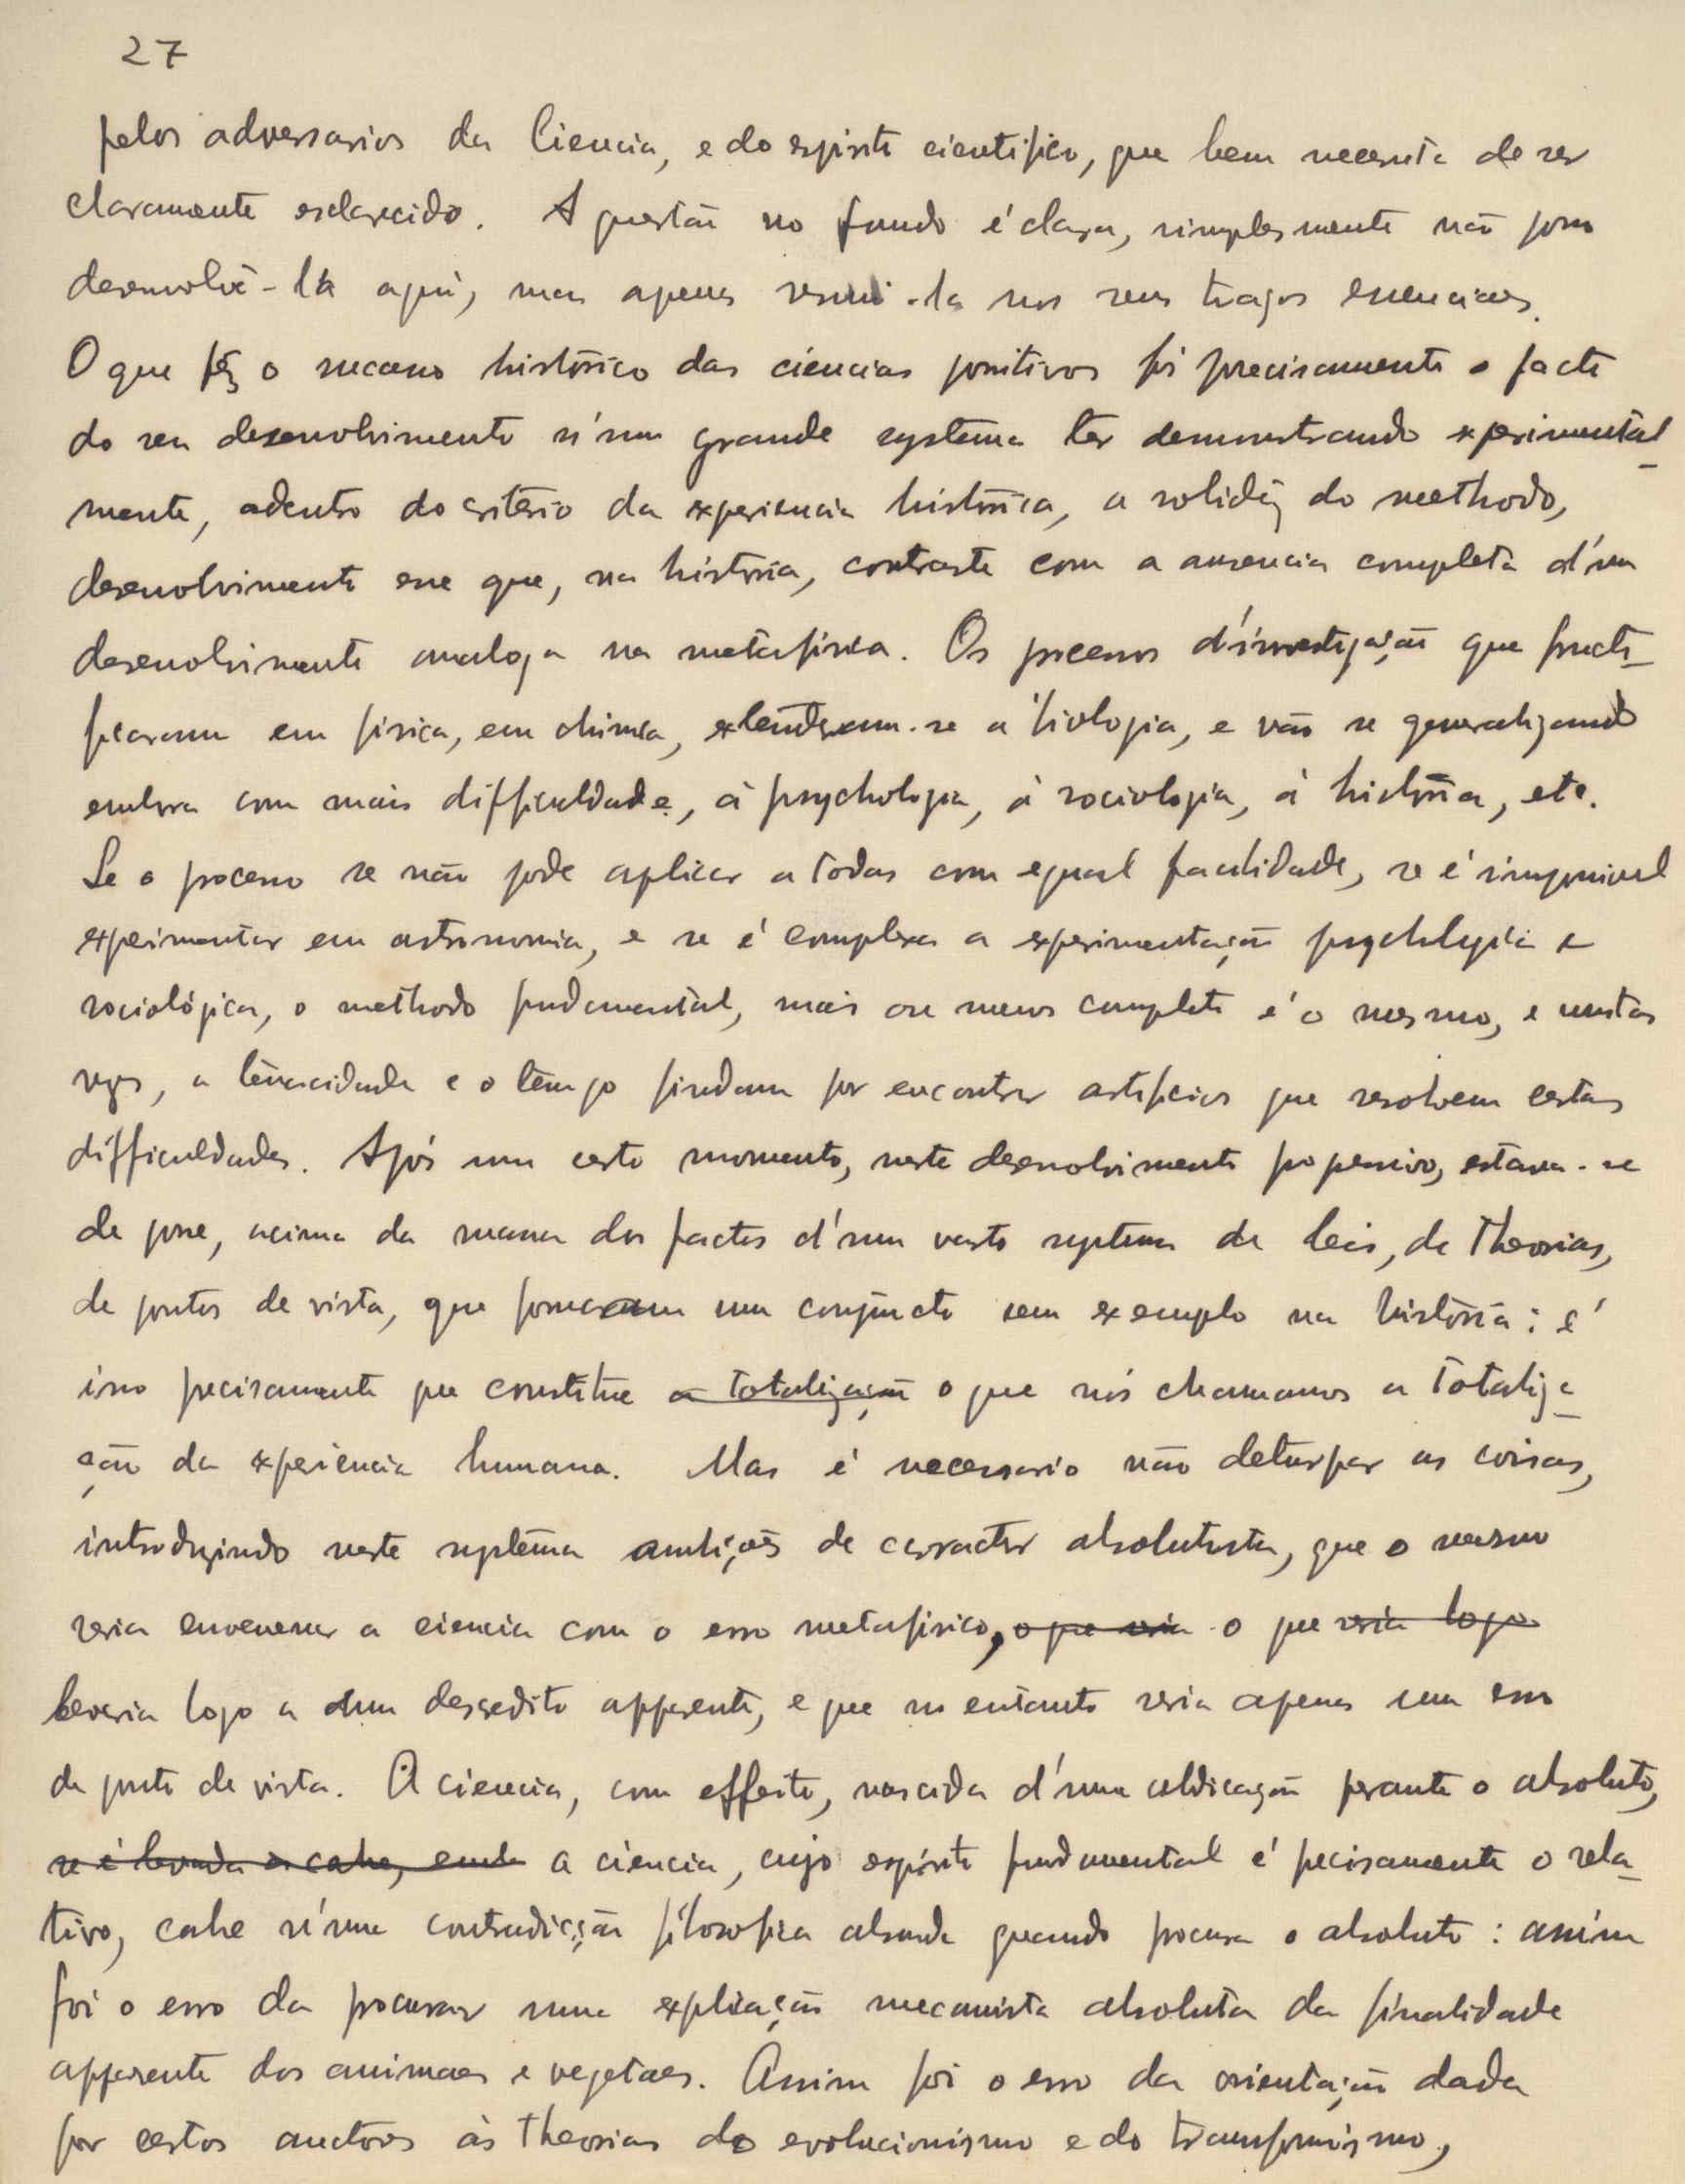 27
pelos adversarios da Ciencia, e do espirito cientifico, que bem necessita de ser
claramente esclarecido. A questão no fundo é clara, simplesmente não posso
desenvolvê-la aqui, mas apenas resumi-la nos seus traços essenciaes.
O que fêz o sucesso histórico das ciencias positivas foi precisamente o facto
do seu desenvolvimento n'um grande systema ter demonstrando experimental-
mente, adentro do critério da experiencia histórica, a solidêz do methodo,
desenvolvimento esse que, na história, contrasta com a ausencia completa d'um
desenvolvimento analogo na metafísica. Os processos d'investigação que fructi-
ficaram em física, em chimica, extenderam-se a biologia, e vão se generalizando
embora com mais difficuldade, á psychologia, á sociologia, á história, etc.
Se o processo se não pode aplicar a todas com egual facilidade, se é impossivel
experimentar em astronomia, e se é complexa a experimentação psychologica e
sociológica, o methodo fundamental, mais ou menos completo é o mesmo, e muitas
vezes, a tenacidade e o tempo findam por encontrar artificios que resolvem certas
difficuldades. Após um certo momento, neste desenvolvimento progressivo, estava-se
de posse, acima da massa dos factos d'um vasto systema de leis, de Theorias,
de pontos de vista, que formaram um conjuncto sem exemplo na história: é
isso precisamente que constitue a totalização o que nós chamamos a Totaliza-
ção da experiencia humana. Mas é necessario não deturpar as coisas,
introduzindo neste systema ambições de carracter absolutista, que o mesmo
seria envenenar a ciencia com o erro metafisico, o que seria o que seria logo
levaria logo a dum descredito apparente, e que no entanto seria apenas um erro
de ponto de vista. A ciencia, com effeito, nascida d'uma abdicação perante o absoluto,
se é levada a cabo, a ciencia, cujo espírito fundamental é precisamente o rela-
tivo, cahe n'uma contradicção filosofica absurda quando procura o absoluto: assim
foi o erro da procurar uma explicação mecanista absoluta da finalidade
apparente dos animaes e vegetaes. Assim foi o erro da orientação dada
por certos auctores às Theorias do evolucionismo e do transformismo,